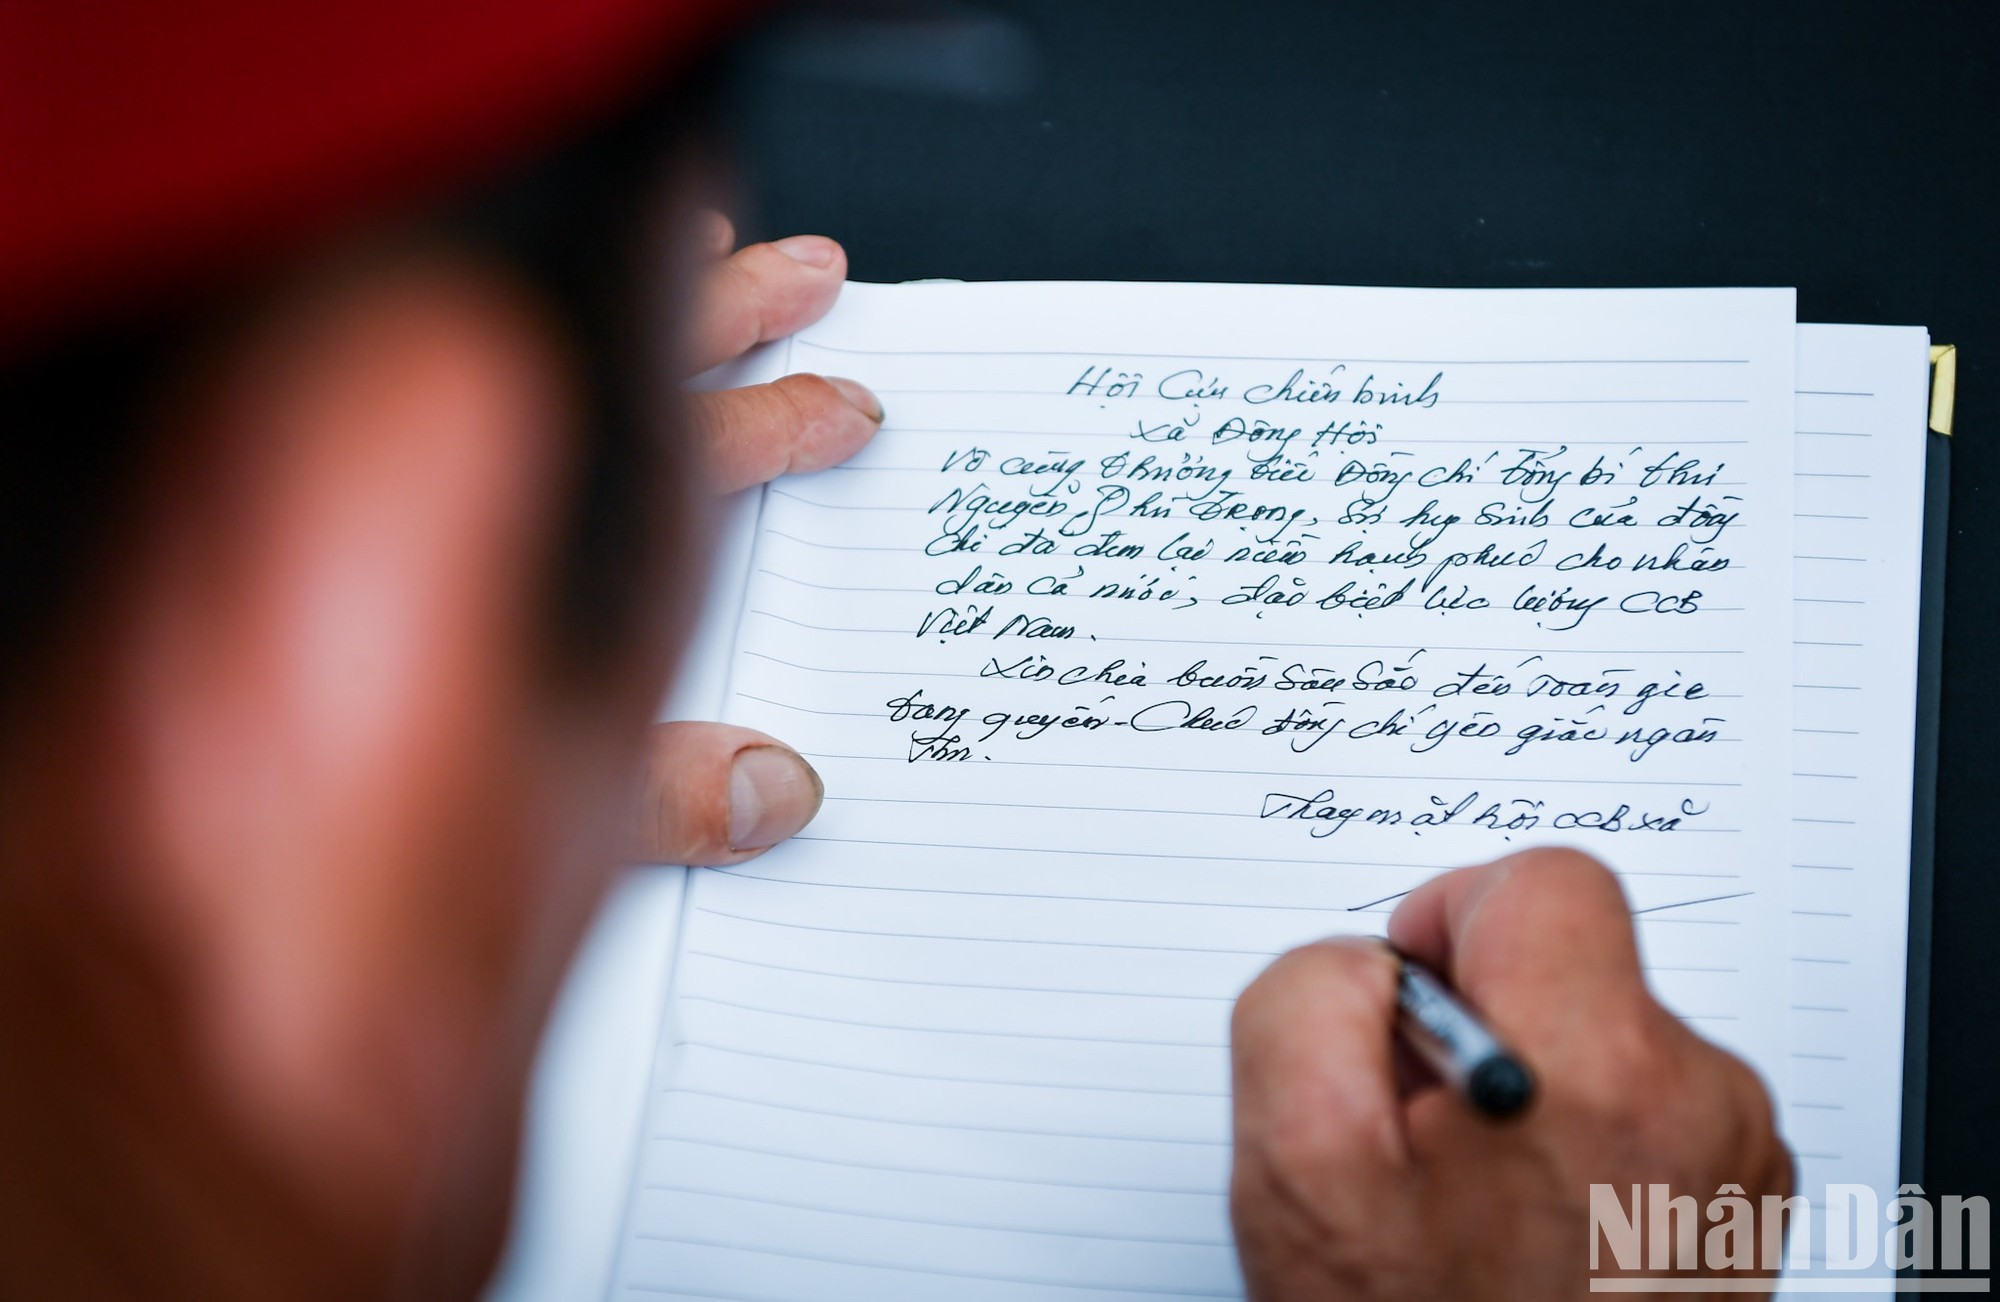 Hội Cựu chiến binh
xã Đông Hội
Vô cùng thương tiếc Đồng chí Tổng bí thư
Nguyễn Phú Trọng, Sự hy sinh của đồng
chí đã đem lại niềm hạnh phúc cho nhân
dân cả nước, đặc biệt lực lượng CCB
Việt Nam.
Xin chia buồn sâu sắc đến toàn gia
tang quyến - Chúc đồng chí yên giấc ngàn
Thu.
Thay mặt hội CCB xã
Nhân Dân